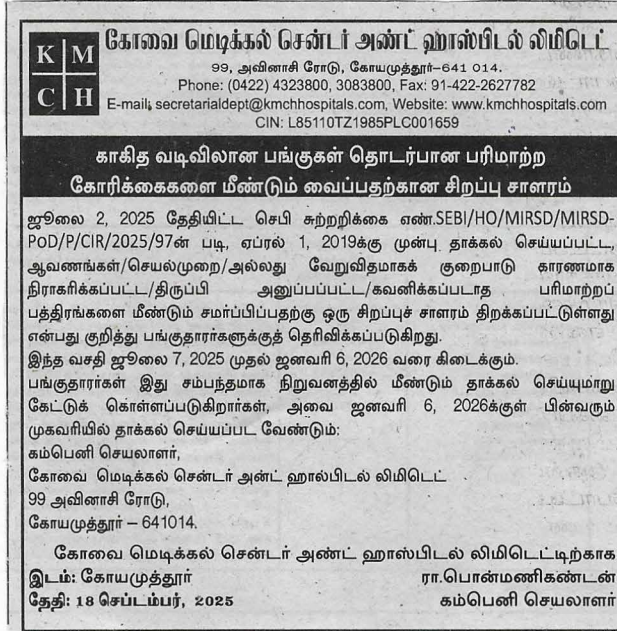 K M
C H
கோவை மெடிக்கல் சென்டர் அண்ட் ஹாஸ்பிடல் லிமிடெட்
99, அவினாசி ரோடு, கோயமுத்தூர்–641 014.
Phone: (0422) 4323800, 3083800, Fax: 91-422-2627782
E-mail: secretarialdept@kmchhospitals.com, Website: www.kmchhospitals.com
CIN: L85110TZ1985PLC001659
காகித வடிவிலான பங்குகள் தொடர்பான பரிமாற்ற
கோரிக்கைகளை மீண்டும் வைப்பதற்கான சிறப்பு சாளரம்
ஜூலை 2, 2025 தேதியிட்ட செபி சுற்றறிக்கை எண்.SEBI/HO/MIRSD/MIRSD-
PoD/P/CIR/2025/97ன் படி, ஏப்ரல் 1, 2019க்கு முன்பு தாக்கல் செய்யப்பட்ட,
ஆவணங்கள்/செயல்முறை/அல்லது வேறுவிதமாகக் குறைபாடு காரணமாக
நிராகரிக்கப்பட்ட/திருப்பி அனுப்பப்பட்ட/கவனிக்கப்படாத பரிமாற்றப்
பத்திரங்களை மீண்டும் சமர்ப்பிப்பதற்கு ஒரு சிறப்புச் சாளரம் திறக்கப்பட்டுள்ளது
என்பது குறித்து பங்குதாரர்களுக்குத் தெரிவிக்கப்படுகிறது.
இந்த வசதி ஜூலை 7, 2025 முதல் ஜனவரி 6, 2026 வரை கிடைக்கும்.
பங்குதாரர்கள் இது சம்பந்தமாக நிறுவனத்தில் மீண்டும் தாக்கல் செய்யுமாறு
கேட்டுக் கொள்ளப்படுகிறார்கள், அவை ஜனவரி 6, 2026க்குள் பின்வரும்
முகவரியில் தாக்கல் செய்யப்பட வேண்டும்:
கம்பெனி செயலாளர்,
கோவை மெடிக்கல் சென்டர் அன்ட் ஹால்பிடல் லிமிடெட்
99 அவினாசி ரோடு,
கோயமுத்தூர் – 641014.
கோவை மெடிக்கல் சென்டர் அண்ட் ஹாஸ்பிடல் லிமிடெட்டிற்காக
இடம்: கோயமுத்தூர் ரா.பொன்மணிகண்டன்
தேதி: 18 செப்டம்பர், 2025 கம்பெனி செயலாளர்